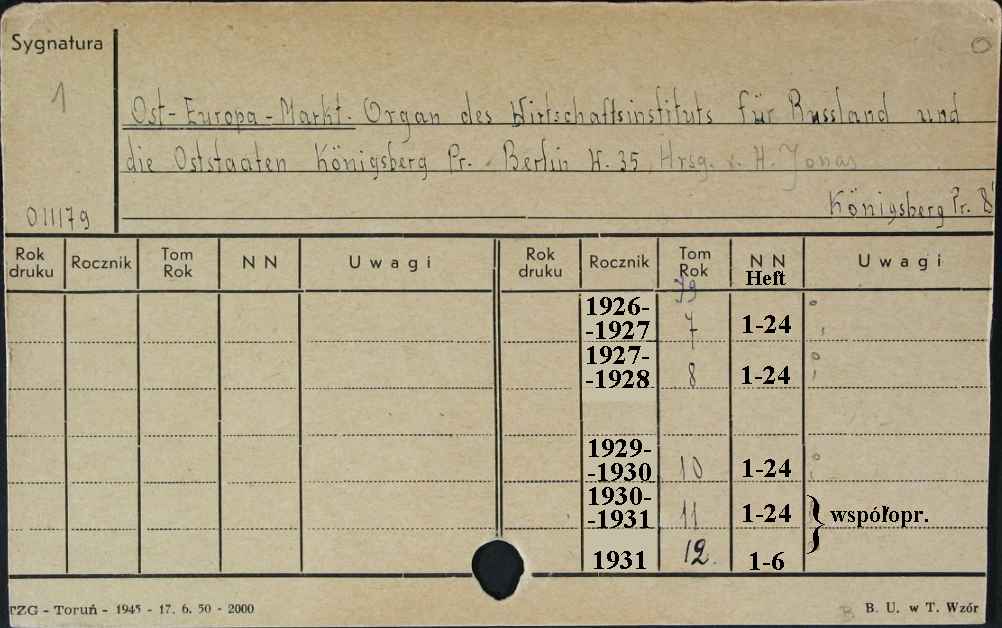 Sygnatura
1
Ost-Europa-Markt. Organ des Wirtschaftsinstituts für Russland und
die Oststaaten Königsberg Pr. - Berlin W. 35 Hrsg. v. H. Jonas
Königsberg Pr. 8°
011179
Rok druku Rocznik Tom Rok N N Uwagi Rok druku Rocznik Tom Rok N N Heft Uwagi
79
1926-
-1927 7 1-24
1927-
-1928 8 1-24
1929-
-1930 10 1-24
1930-
-1931 11 1-24 współopr.
1931 12. 1-6
TZG - Toruń - 1945 - 17. 6. 50 - 2000 B. U. w T. Wzór